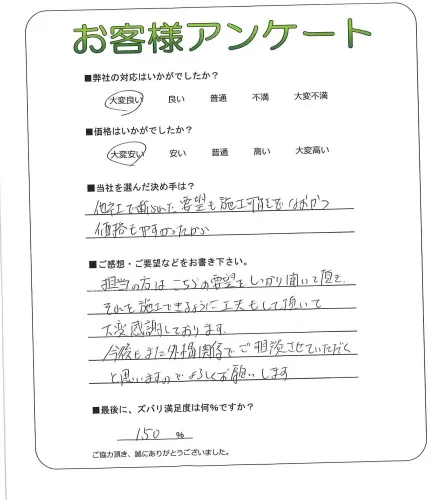 お客様アンケート
■弊社の対応はいかがでしたか?
大変良い 良い 普通 不満 大変不満
■価格はいかがでしたか?
大変安い 安い 普通 高い 大変高い
■当社を選んだ決め手は?
他社で断られた要望も施工可能でなおかつ
価格もやすかったから
■ご感想・ご要望などをお書き下さい。
担当の方はこちらの要望をしっかり聞いて頂き
それを施工できるように工夫もして頂いて
大変感謝しております。
今後もまた外構関係でご相談させていただく
と思いますのでよろしくお願いします
■最後に、ズバリ満足度は何%ですか?
150 %
ご協力頂き、誠にありがとうございました。